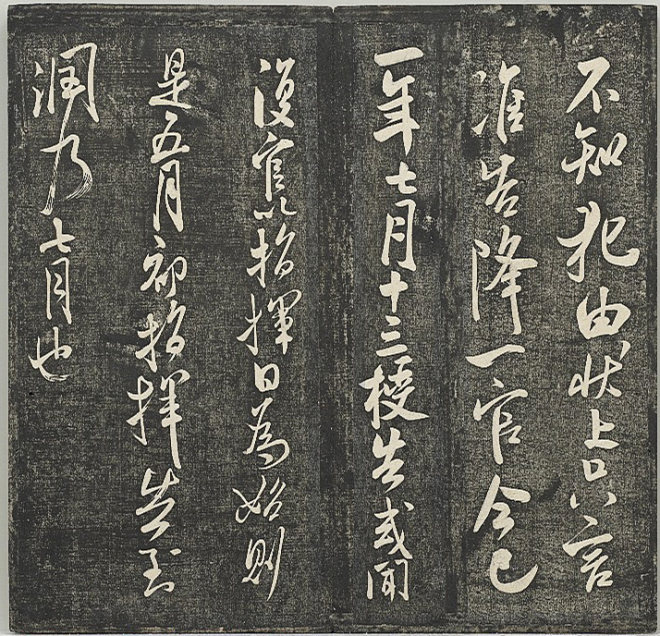 不知犯由状上只言
准告降一官今已
一年七月十三授告或聞
復官以指揮日為始則
是五月初指揮告到
潤乃七月也